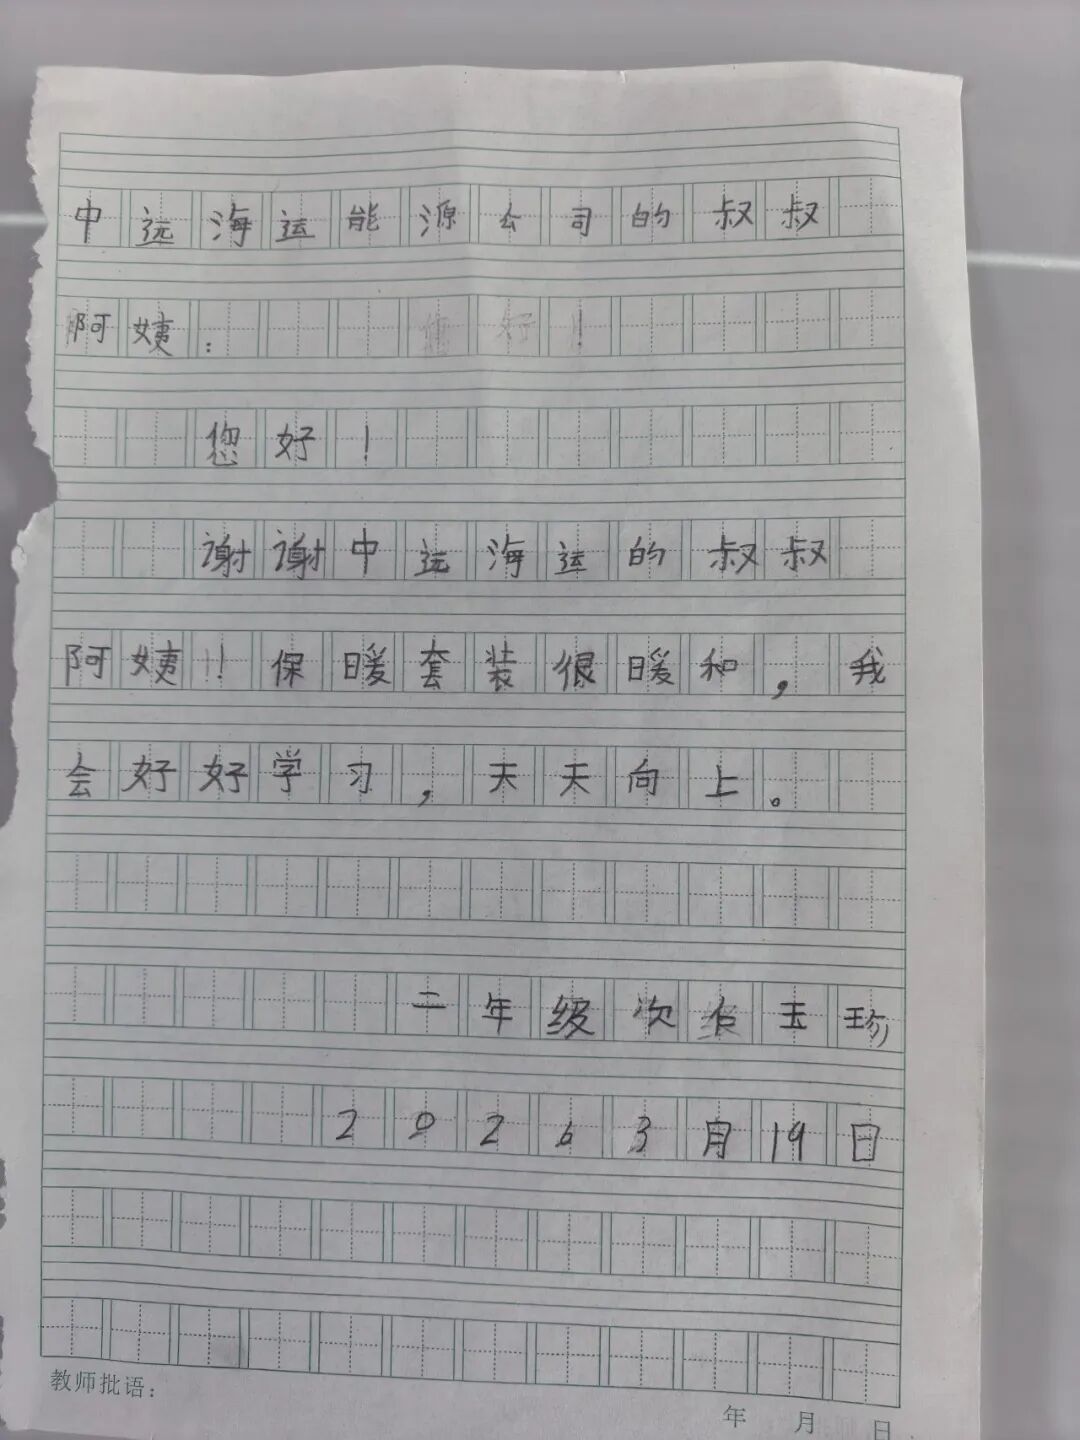 中远海运能源公司的叔叔
阿姨：
您好！
谢谢中远海运的叔叔
阿姨！！保暖套装很暖和，我
会好好学习，天天向上。
二年级次仁玉珍
2026 3月19日
教师批语：
年 月 日